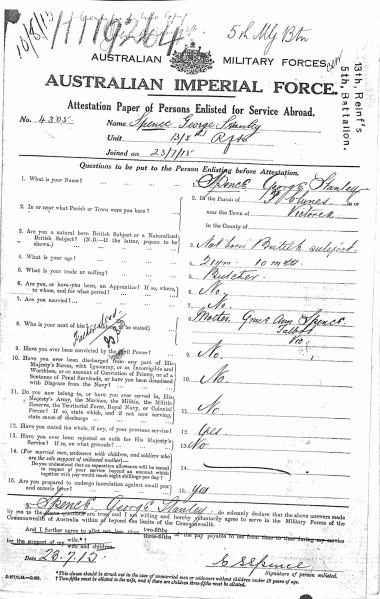 10/8/15
5th Inf Btn
AUSTRALIAN MILITARY FORCES.
AUSTRALIAN IMPERIAL FORCE.
13th. Reinf's
5th. Battalion.
Attestation Paper of Persons Enlisted for Service Abroad.
No. 4305. Name Spence George Stanley
Unit 13/5th Rfts
Joined on 23/7/15
Questions to be put to the Person Enlisting before Attestation.
1. What is your Name? 1. Spence George Stanley
2. In or near what Parish or Town were you born? 2. In the Parish of Clunes in or
near the Town of Victoria
in the County of
3. Are you a natural born British Subject or a Naturalized
British Subject? (N.B.—If the latter, papers to be
shown). 3. Nat born British subject
4. What is your age? 4. 21 yrs. 10 mths
5. What is your trade or calling? 5. Butcher
6. Are you, or have you been, an Apprentice? If so, where,
to whom, and for what period? 6. No
7. Are you married? 7. No.
8. Who is your next of kin? (Address to be stated) 8. Mother. Grace Ann Spence
Talbot
Vic.
Father
9. Have you ever been convicted by the Civil Power? 9. No.
10. Have you ever been discharged from any part of His
Majesty's Forces, with Ignominy, or as Incorrigible and
Worthless, or on account of Conviction of Felony, or of a
Sentence of Penal Servitude, or have you been dismissed
with Disgrace from the Navy? 10. No
11. Do you now belong to, or have you ever served in, His
Majesty's Army, the Marines, the Militia, the Militia
Reserve, the Territorial Force, Royal Navy, or Colonial
Forces? If so, state which, and if not now serving,
state cause of discharge 11. No
12. Have you stated the whole, if any, of your previous service? 12. Yes
13. Have you ever been rejected as unfit for His Majesty's
Service? If so, on what grounds? 13. No
14. (For married men, widowers with children, and soldiers who
are the sole support of widowed mother)—
Do you understand that no separation allowance will be issued
in respect of your service beyond an amount which
together with pay would reach eight shillings per day? 14.
15. Are you prepared to undergo inoculation against small pox
and enteric fever? 15. Yes
I, Spence George Stanley, do solemnly declare that the above answers made
by me to the above questions are true, and I am willing and hereby voluntarily agree to serve in the Military Forces of the
Commonwealth of Australia within or beyond the limits of the Commonwealth.
And I further agree to allot not less than two-fifths of the pay payable to me from time to time during my service
for the support of my wife.
wife and children
Date 23.7.15. G S Spence
Signature of person enlisted.
*This clause should be struck out in the case of unmarried men or widowers without children under 18 years of age.
†Two-fifths must be allotted to the wife, and if there are children three-fifths must be allotted.